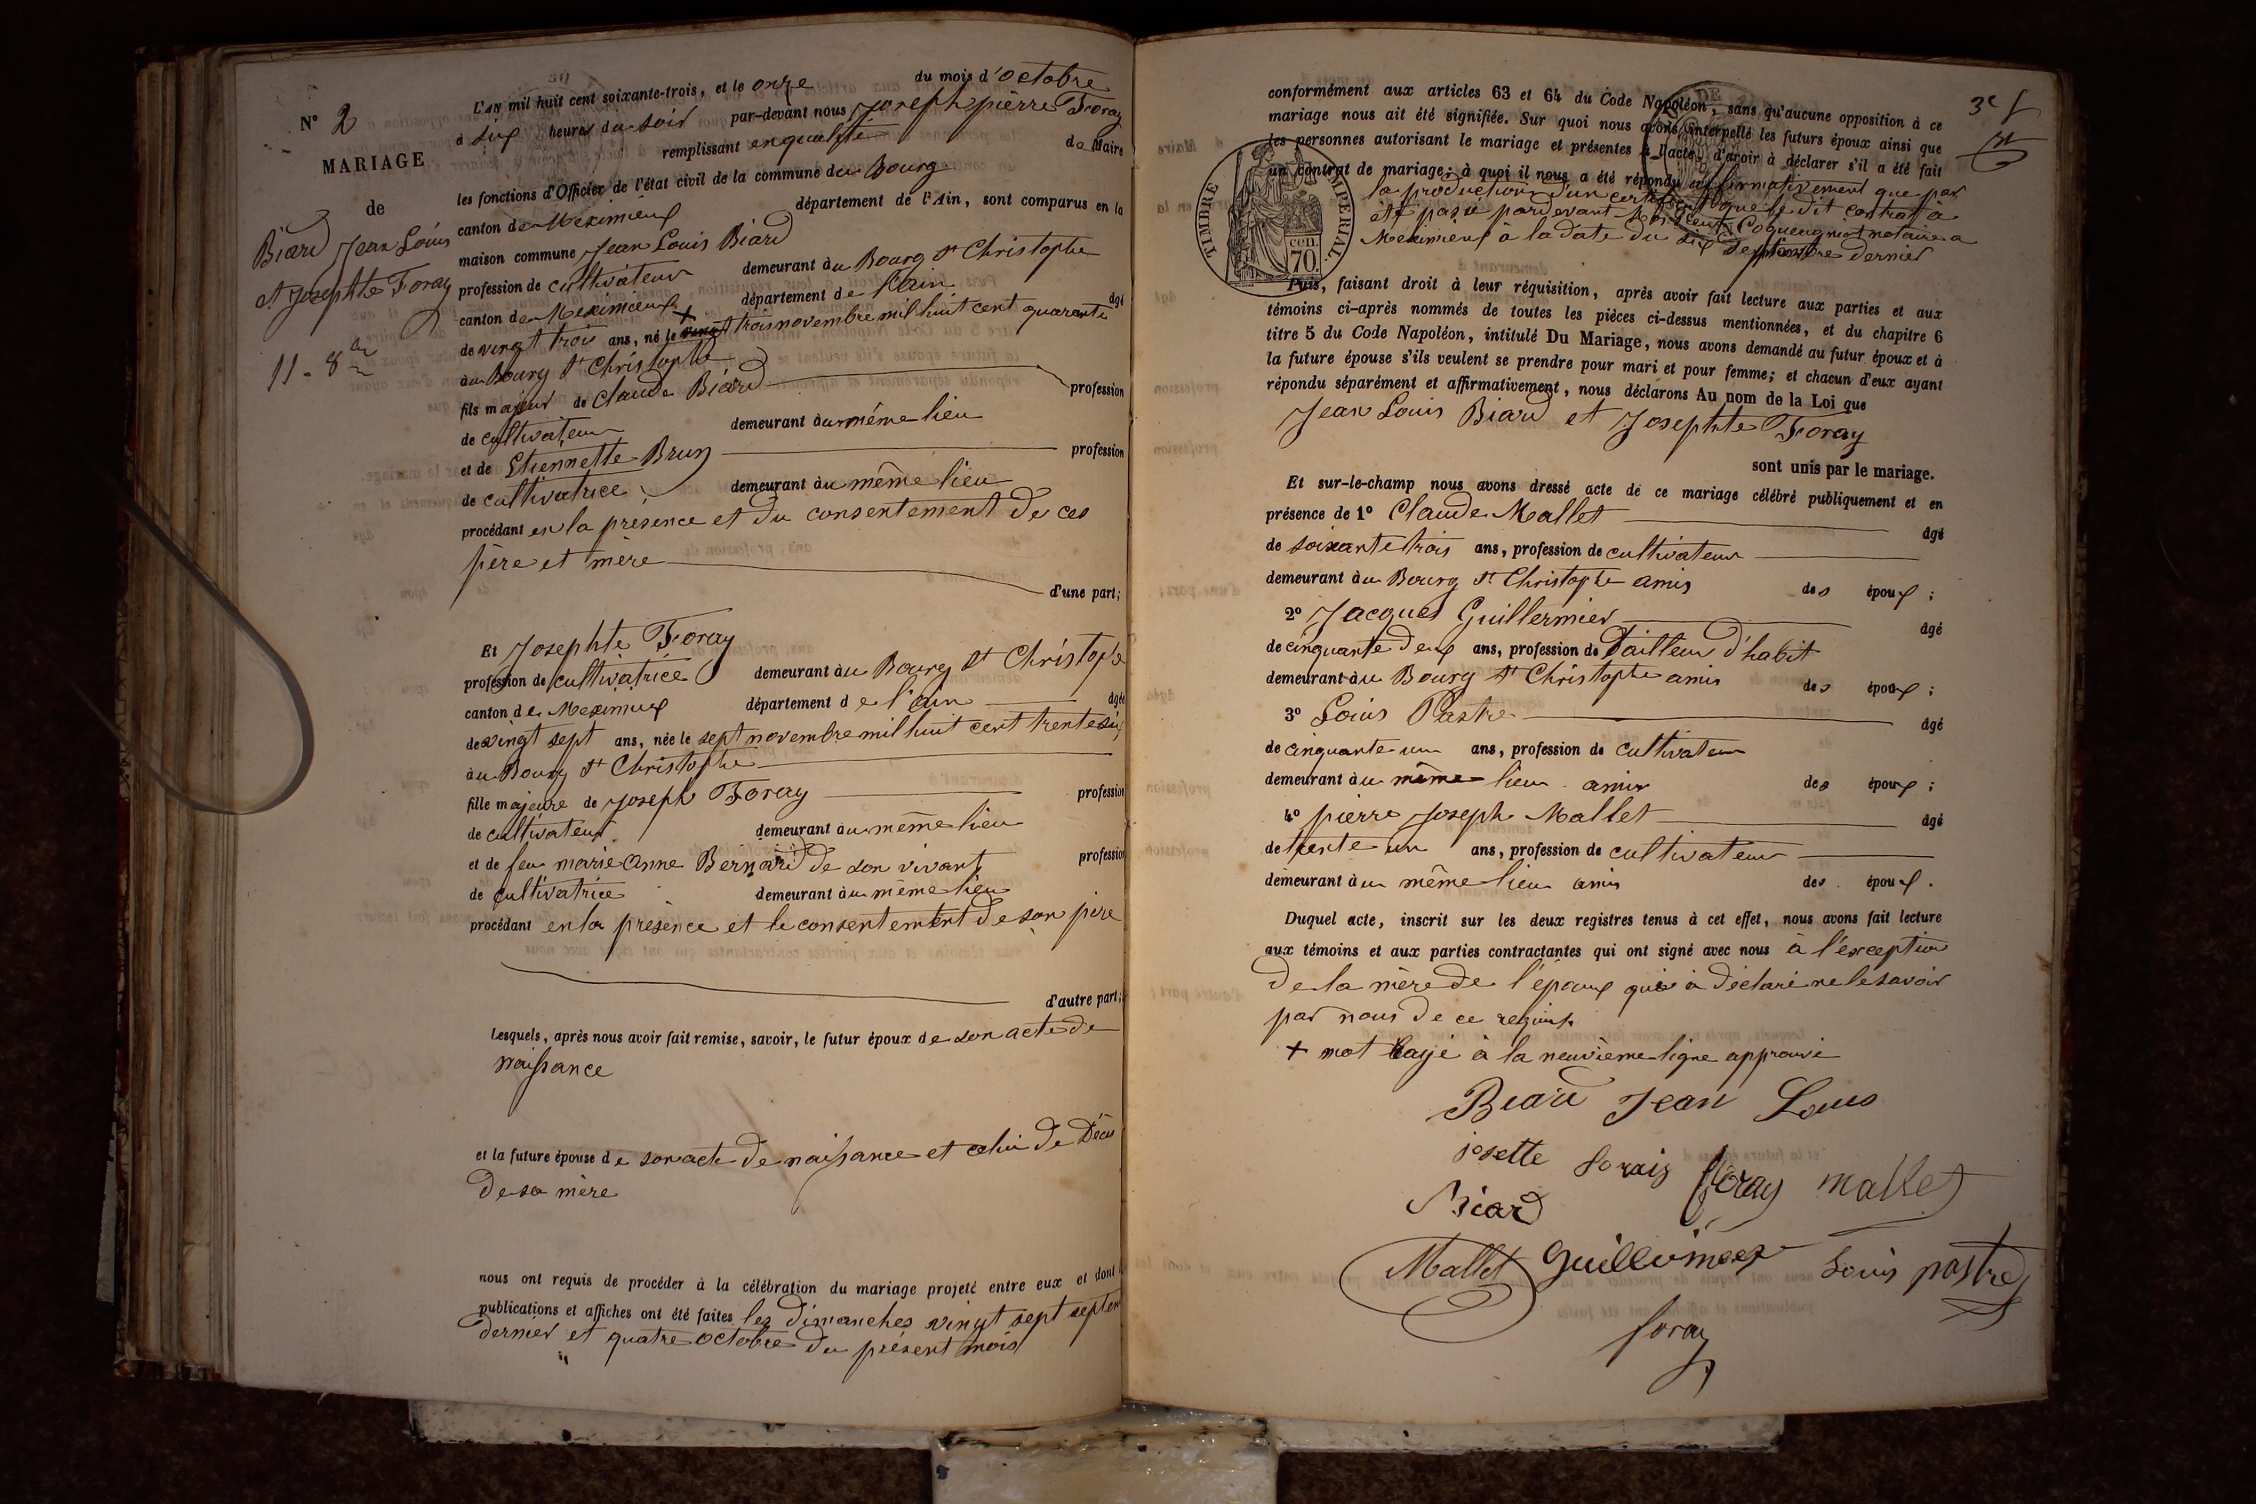 N° 2
MARIAGE
de
Biard Jean Louis
et Josephte Foray
11 - 8bre
L'AN mil huit cent soixante-trois, et le onze du mois d'octobre
à six heures du soir par-devant nous Joseph pierre Foray
remplissant en qualité de Maire
les fonctions d'Officier de l'état civil de la commune du Bourg
canton de Meximieux département de l'Ain, sont comparus en la
maison commune Jean Louis Biard
profession de cultivateur demeurant au Bourg St Christophe
canton de Meximieux département de l'ain âgé
de vingt trois ans, né le vingt + trois novembre mil huit cent quarante
au Bourg St Christophe
fils majeur de Claude Biard profession
de cultivateur demeurant au même lieu
et de Etiennette Brun profession
de cultivatrice demeurant au même lieu
procédant en la présence et du consentement de ces
père et mère
d'une part;
Et Josephte Foray
profession de cultivatrice demeurant au Bourg St Christophe
canton de Meximieux département de l'ain âgée
de vingt sept ans, née le sept novembre mil huit cent trente six
au Bourg St Christophe
fille majeure de Joseph Foray profession
de cultivateur demeurant au même lieu
et de feu marie anne Bernard de son vivant profession
de cultivatrice demeurant au même lieu
procédant en la présence et le consentement de son père
d'autre part;
Lesquels, après nous avoir fait remise, savoir, le futur époux de son acte de
naissance
et la future épouse de son acte de naissance et celui de Décès
de sa mère
nous ont requis de procéder à la célébration du mariage projeté entre eux et dont
publications et affiches ont été faites les dimanches vingt sept septem
dernier et quatre octobre du présent mois
conformément aux articles 63 et 64 du Code Napoléon, sans qu'aucune opposition à ce
mariage nous ait été signifiée. Sur quoi nous avons interpellé les futurs époux ainsi que
les personnes autorisant le mariage et présentes à l'acte, d'avoir à déclarer s'il a été fait
un contrat de mariage; à quoi il nous a été répondu affirmativement que par
la production d'un certificat que le dit contrat à
été passé pardevant Me Coqueugniot notaire a
Meximieux à la date du six septembre dernier
TIMBRE IMPERIAL.
70. cen.
Puis, faisant droit à leur réquisition, après avoir fait lecture aux parties et aux
témoins ci-après nommés de toutes les pièces ci-dessus mentionnées, et du chapitre 6
titre 5 du Code Napoléon, intitulé Du Mariage, nous avons demandé au futur époux et à
la future épouse s'ils veulent se prendre pour mari et pour femme; et chacun d'eux ayant
répondu séparément et affirmativement, nous déclarons Au nom de la Loi que
Jean Louis Biard et Josephte Foray
sont unis par le mariage.
Et sur-le-champ nous avons dressé acte de ce mariage célébré publiquement et en
présence de 1° Claude Mallet âgé
de soixante trois ans, profession de cultivateur
demeurant au Bourg St Christophe amis des époux;
2° Jacques Guillermier âgé
de cinquante deux ans, profession de Tailleur d'habit
demeurant au Bourg St Christophe amis des époux;
3° Louis Pastre âgé
de cinquante un ans, profession de cultivateur
demeurant au même lieu amis des époux;
4° pierre Joseph Mallet âgé
de trente un ans, profession de cultivateur
demeurant au même lieu amis des époux.
Duquel acte, inscrit sur les deux registres tenus à cet effet, nous avons fait lecture
aux témoins et aux parties contractantes qui ont signé avec nous à l'éxception
de la mère de l'époux qui à déclaré ne le savoir
par nous de ce requise
+ mot rayé à la neuvième ligne approuvé
Biard Jean Louis
josette forais foray mallet
Biard
Mallet Guillermier Louis pastre
foray